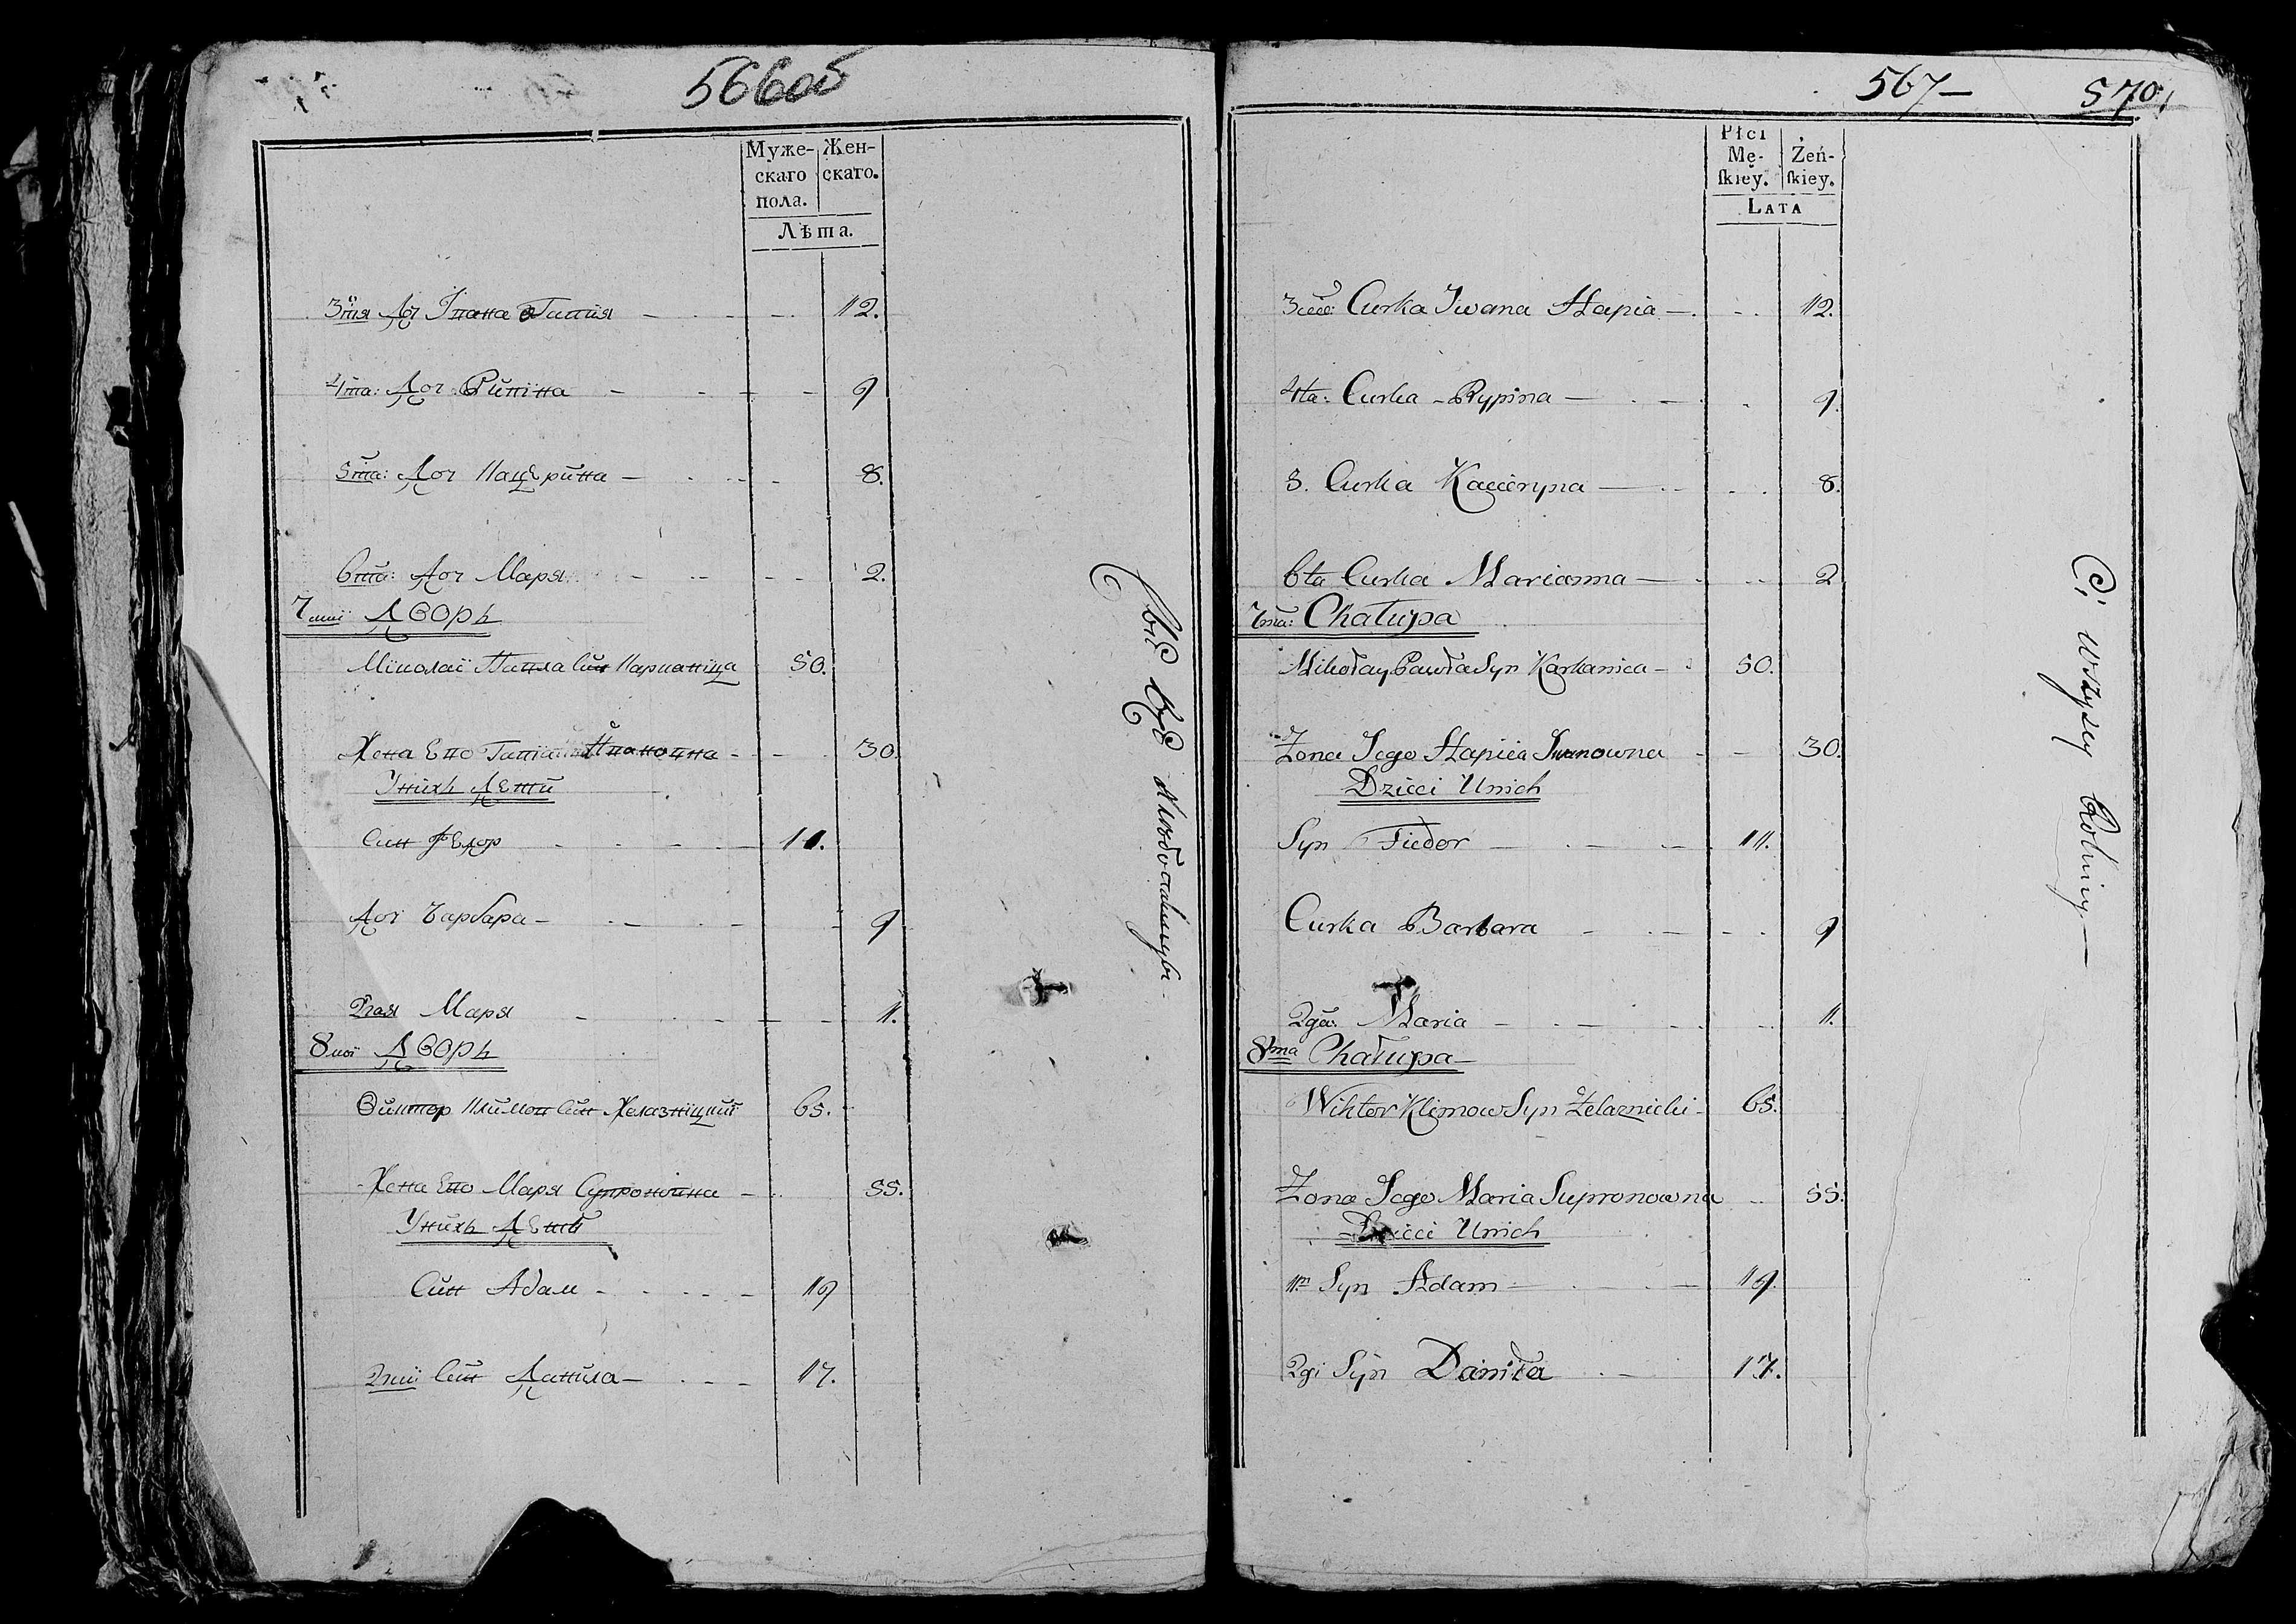 566об
Муже-
скаго
пола.
Жен-
скаго.
Лѣта.
3тя Доч Івана Гапія 12.
4та: Доч Рипіна 9
5та: Доч Кацерина 8.
6та: Доч Маря 2.
7мїй Дворъ
Міколай Павла Син Карканіца 50.
Жена Его Гапія Ивановна 30.
Унихъ Дети
Син Федор 11.
Доч Барбара 9
2гая Маря 11.
8мой Дворъ
Виктор Климов Син Желазніцкий 65.
Жена Его Маря Супроновна 55.
Унихъ Дети
Син Адам 19
2гий Син Данила 17.
567 570
Płci
Mę-
ſkiey.
Żeń-
ſkiey.
Lata
3cia: Curka Iwana Hapia 12.
4ta: Curka Rypina 9.
5. Curka Kacieryna 8.
6ta Curka Marianna 2
7ma: Chałupa
Mikołay Pawła Syn Karkanica 50.
Żona Jego Hapiia Iwanowna 30.
Dzieci Unich
Syn Fiedor 11.
Curka Barbara 9
2ga: Maria 11.
8ma Chałupa
Wiktor Klimow Syn Żelaznicki 65.
Żona Jego Maria Supronowna 55.
Dzieci Unich
1n Syn Adam 19.
2gi Syn Daniła 17.
Ci wszyscy Rolnicy